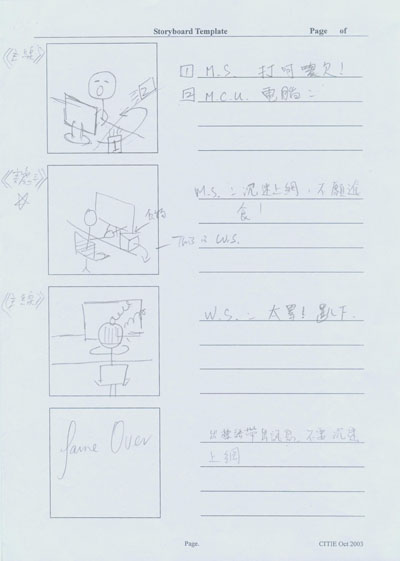 Storyboard Template Page of
1 M.S. 打呵欠!
2 M.C.U. 電腦:
M.S.: 沉迷上網,不願進
食!
This is W.S.
W.S.: 太累! 趴下.
Game Over
不要沉迷
上網
Page. CITIE Oct 2003